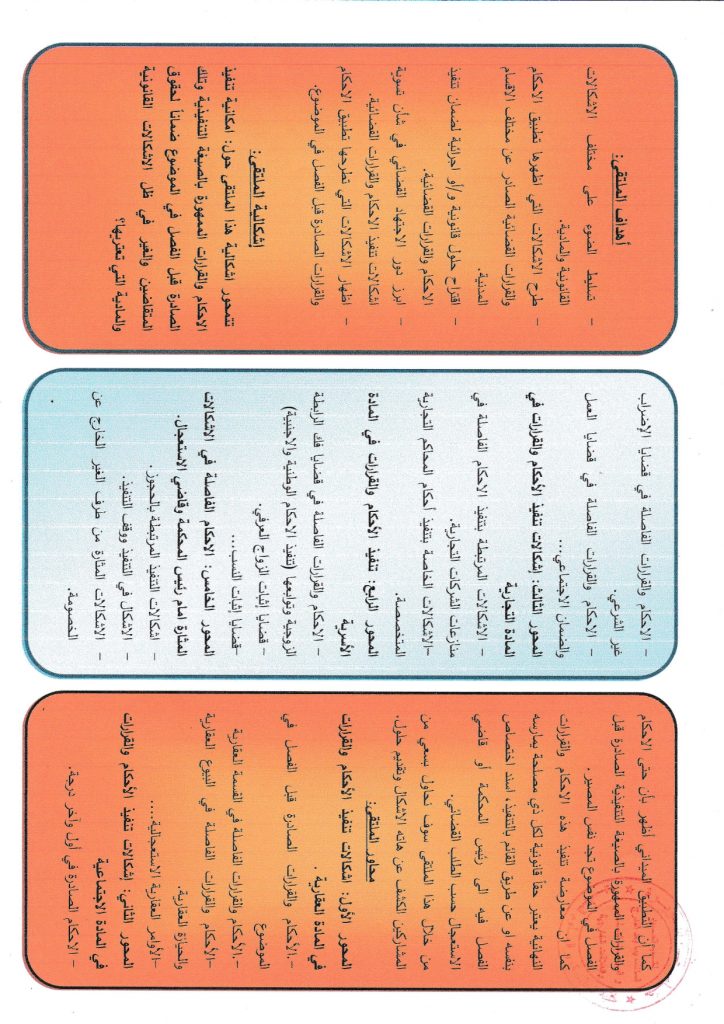 كما أن التطبيق الميداني أظهر بأن حتى الاحكام
والقرارات الممهورة بالصيغة التنفيذية الصادرة قبل
الفصل في الموضوع تجد نفس المصير.
كما أن معارضة تنفيذ هذه الاحكام والقرارات
النهائية يعتبر حقا قانونية لكل ذي مصلحة يمارسه
بنفسه او عن طريق القائم بالتنفيذ، اسند اختصاص
الفصل فيه الى رئيس المحكمة أو قاضي
الاستعجال حسب الطلب القضائي.
من خلال هذا الملتقى سوف نحاول بسعي من
المشاركين الكشف عن هاته الاشكال وتقديم حلول.
محاور الملتقى:
المحور الأول: إشكالات تنفيذ الأحكام والقرارات
في المادة العقارية.
-.الأحكام والقرارات الصادرة قبل الفصل في
الموضوع
-.الأحكام والقرارات الفاصلة في القسمة العقارية
-الأحكام والقرارات الفاصلة في البيوع العقارية
والحيازة العقارية.
-الأوامر العقارية الاستعجالية.....
المحور الثاني: إشكالات تنفيذ الأحكام والقرارات
في المادة الاجتماعية
- الأحكام الصادرة في أول وآخر درجة.
- الاحكام والقرارات الفاصلة في قضايا الإضراب
غير الشرعي.
- الاحكام والقرارات الفاصلة في قضايا العمل
والضمان الاجتماعي...
المحور الثالث: إشكالات تنفيذ الأحكام والقرارات في
المادة التجارية
- الاشكالات المرتبطة بتنفيذ الاحكام الفاصلة في
منازعات الشركات التجارية.
-الاشكالات الخاصة بتنفيذ أحكام المحاكم التجارية
المتخصصة.
المحور الرابع: تنفيذ الأحكام والقرارات في المادة
الأسرية
- الاحكام والقرارات الفاصلة في قضايا فك الرابطة
الزوجية وتوابعها (تنفيذ الاحكام الوطنية والاجنبية)
- قضايا إثبات الزواج العرفي.
-قضايا إثبات النسب...
المحور الخامس: الاحكام الفاصلة في الاشكالات
المثارة امام رئيس المحكمة وقاضي الاستعجال.
- اشكالات التنفيذ المرتبطة بالحجوز.
- الاشكال في التنفيذ ووقف التنفيذ.
- الاشكالات المثارة من طرف الغير الخارج عن
الخصومة.
أهداف الملتقى:
- تسليط الضوء على مختلف الاشكالات
القانونية والمادية.
- طرح الاشكالات التي اظهرها تطبيق الاحكام
والقرارات القضائية الصادر عن مختلف الاقسام
المدنية.
- اقتراح حلول قانونية و/أو اجرائية لضمان تنفيذ
الأحكام والقرارات القضائية.
- ابرز دور الاجتهاد القضائي في شأن تسوية
اشكالات تنفيذ الاحكام والقرارات القضائية.
- اظهار الاشكالات التي تطرحها تطبيق الاحكام
والقرارات الصادرة قبل الفصل في الموضوع.
إشكالية الملتقى:
تتمحور اشكالية هذا الملتقى حول: امكانية تنفيذ
الاحكام والقرارات الممهورة بالصيغة التنفيذية وتلك
الصادرة قبل الفصل في الموضوع ضمانا لحقوق
المتقاضين والغير في ظل الإشكالات القانونية
والمادية التي تعتريها؟